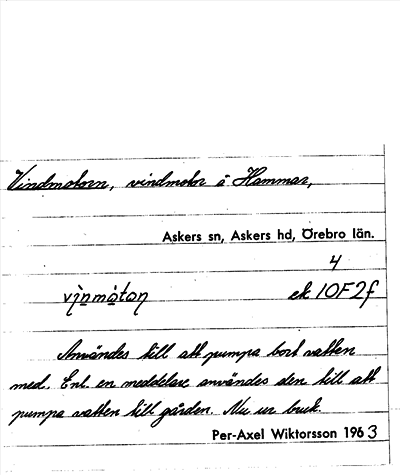 Vindmotorn, vindmotor å Hammar,
Askers sn, Askers hd, Örebro län.
4
vìṇmátoṇ ek 10F2f
Användes till att pumpa bort vatten
med. Enl. en meddelare användes den till att
pumpa vatten till gården. Nu ur bruk.
Per-Axel Wiktorsson 1963